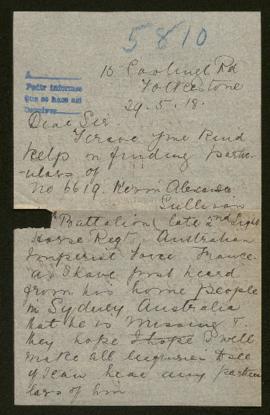 5810
A
15 Coolinge Rd
Folkestone
29.5.18.
Dear Sir
I crave your kind
help in finding partic-
ulars of
No 6619. Kevin Alexander
Sullivan
Battalion late 2nd Light
Horse Regt, Australian
Imperial Force France.
as I have just heard
from his home people
in Sydney Australia
that he is missing &
they hope I hope I will
make all inquiries to see
if I can hear any particu
lars of him